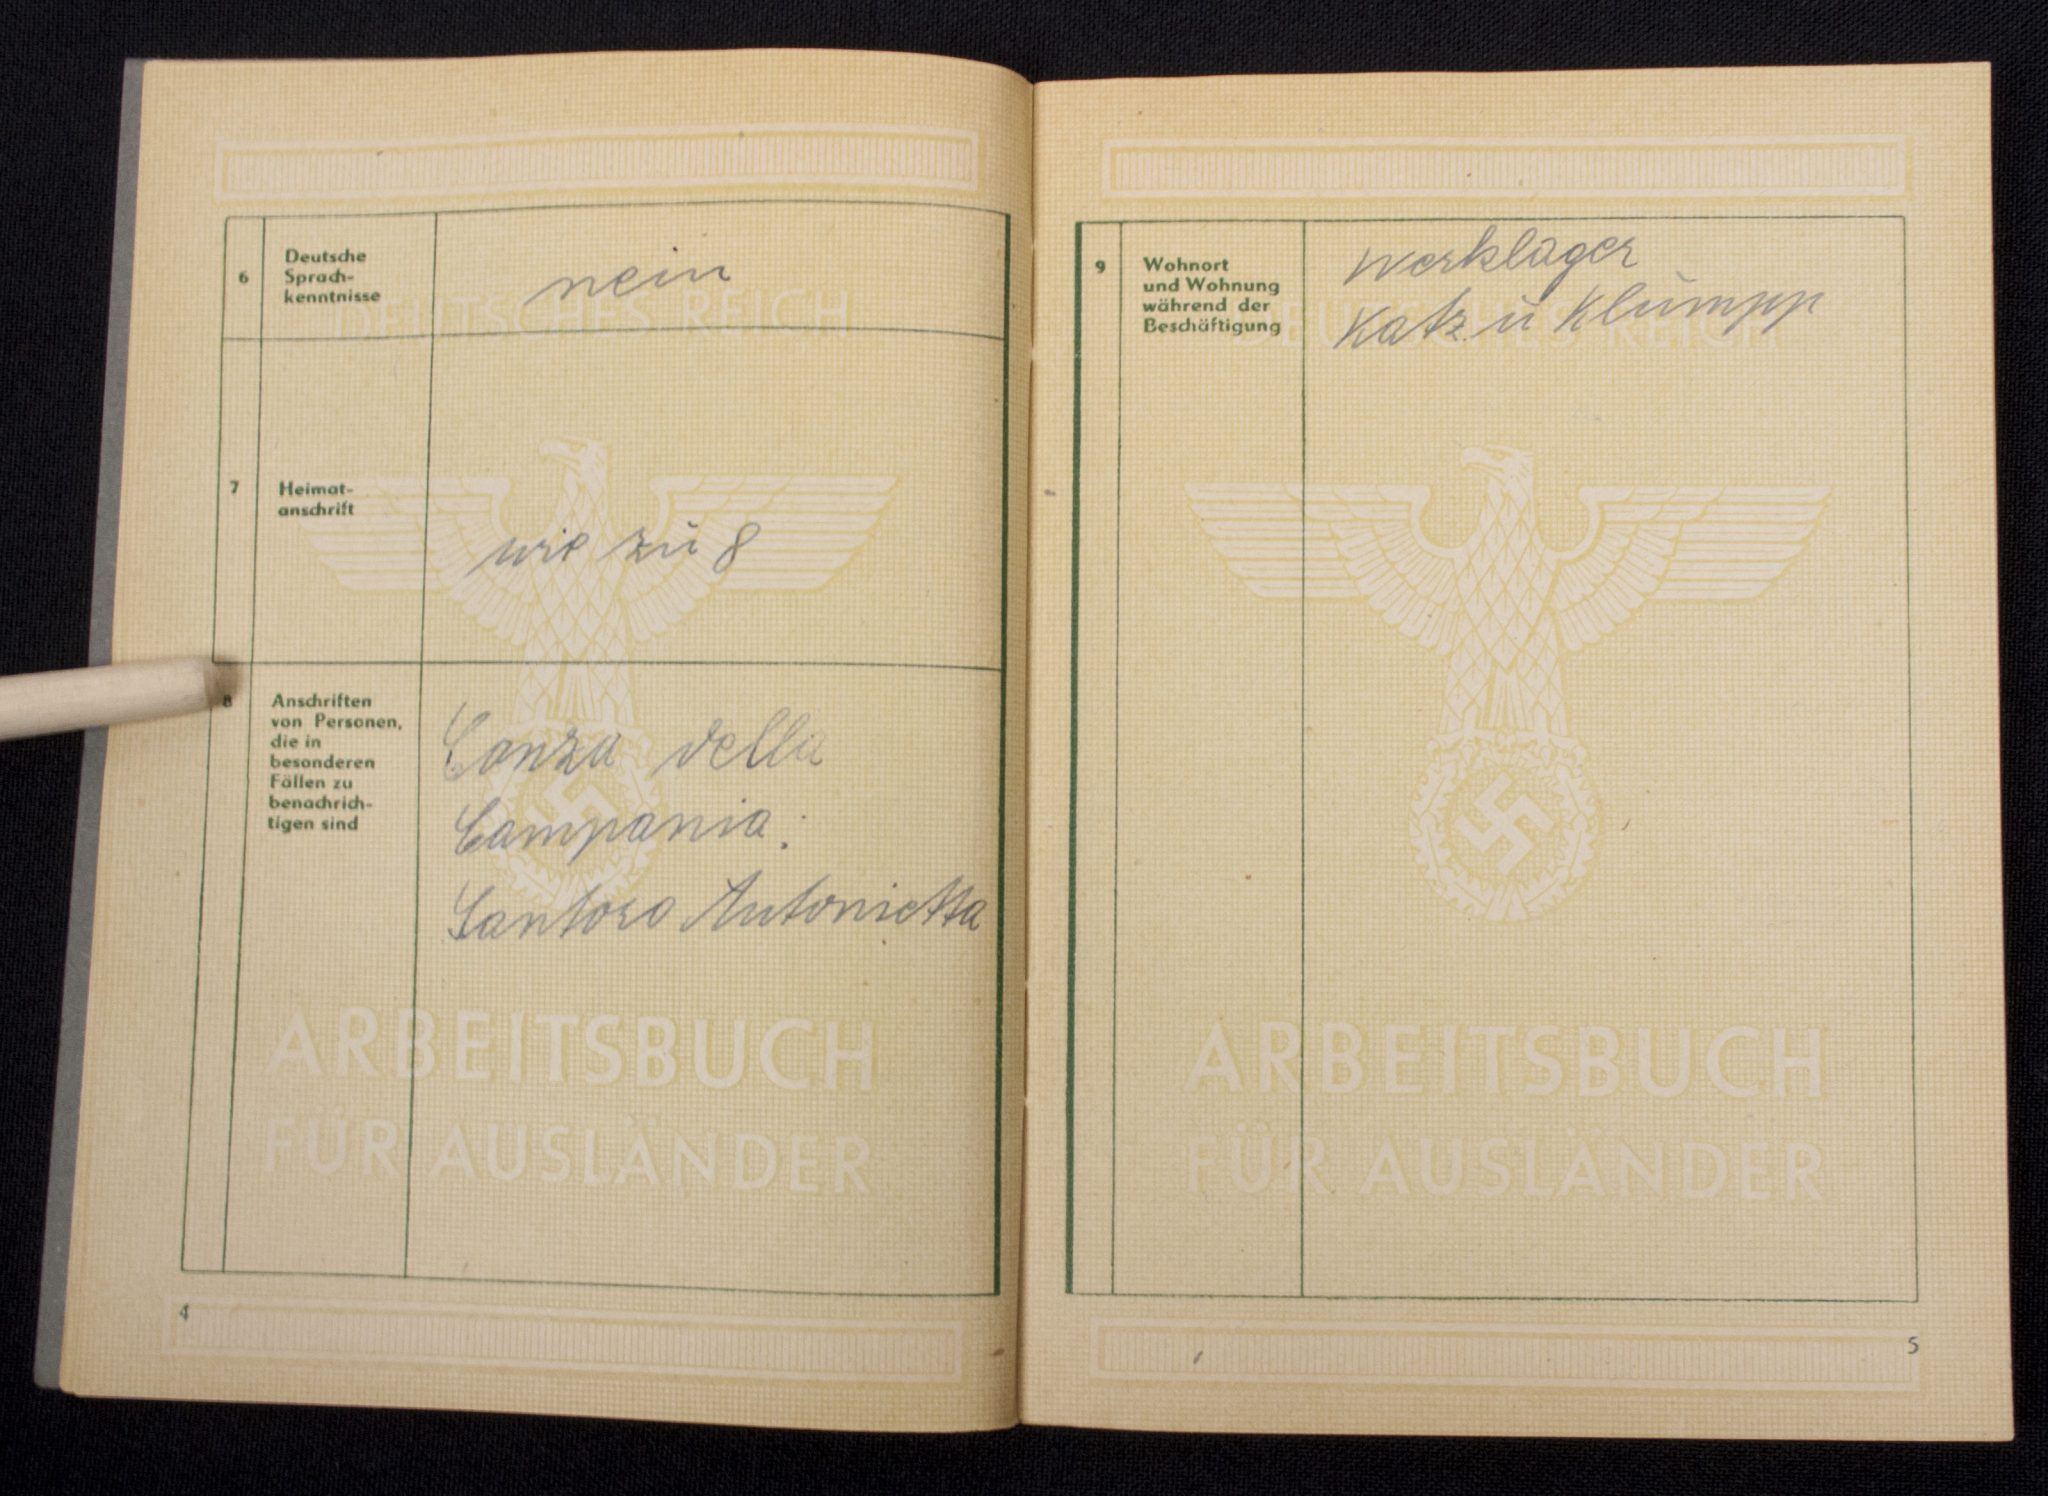 DEUTSCHES REICH
6
Deutsche
Sprach-
kenntnisse
nein
7
Heimat-
anschrift
wie zu 8
8
Anschriften
von Personen,
die in
besonderen
Fällen zu
benachrich-
tigen sind
Conza della
Campania.
Santoro Antonietta
ARBEITSBUCH
FÜR AUSLÄNDER
4
DEUTSCHES REICH
9
Wohnort
und Wohnung
während der
Beschäftigung
Werkslager
Katz u Klumpp
ARBEITSBUCH
FÜR AUSLÄNDER
5